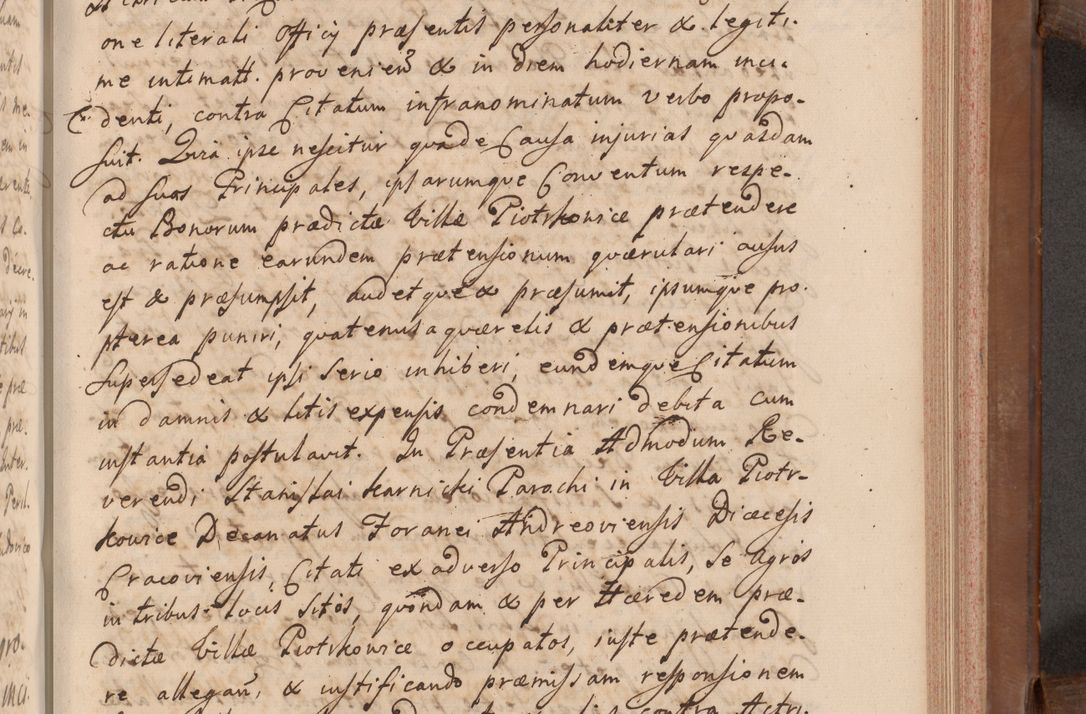 one literali Officij præsentis personaliter & legiti-
me intimatt. provenien & in diem hodiernam inci-
denti, contra Citatum infranominatum verbo propo-
suit. Quia ipse nescitur qua de Causa injurias quasdam
ad suos Principales, ipsarumque Conventum respe-
ctu Bonorum prædictæ Villæ Piotrkowice prætendere
ac ratione earundem prætensionum quærulari ausus
est & præsumpsit, audetque & præsumit, ipsumque pro-
pterea puniri, quatenus a quærelis & prætensionibus
supersedeat ipsi serio inhiberi, eundemque Citatum
in damnis & litis expensis condemnari debita cum
instantia postulavit. In Præsentia Admodum Re-
verendi Stanislai Karnicki Parochi in Villa Piotr-
kowice Decanatus Foranei Andreoviensis Diæcesis
Cracoviensis, Citati ex adverso Principalis, se agros
in tribus locis sitos, quondam & per Hæredem præ-
dictæ Villæ Piotrkowice occupatos, iuste prætende-
re allegan, & iustificando præmissam responsionem